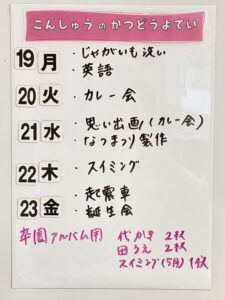 こんしゅうのかつどうよてい
19 月 ・じゃがいも洗い
・英語
20 火 ・カレー会
21 水 ・思い出画(カレー会)
・なつまつり製作
22 木 ・スイミング
・起震車
23 金 ・誕生会
卒園アルバム用 代かき 2枚
田うえ 2枚
スイミング(5月) 1枚